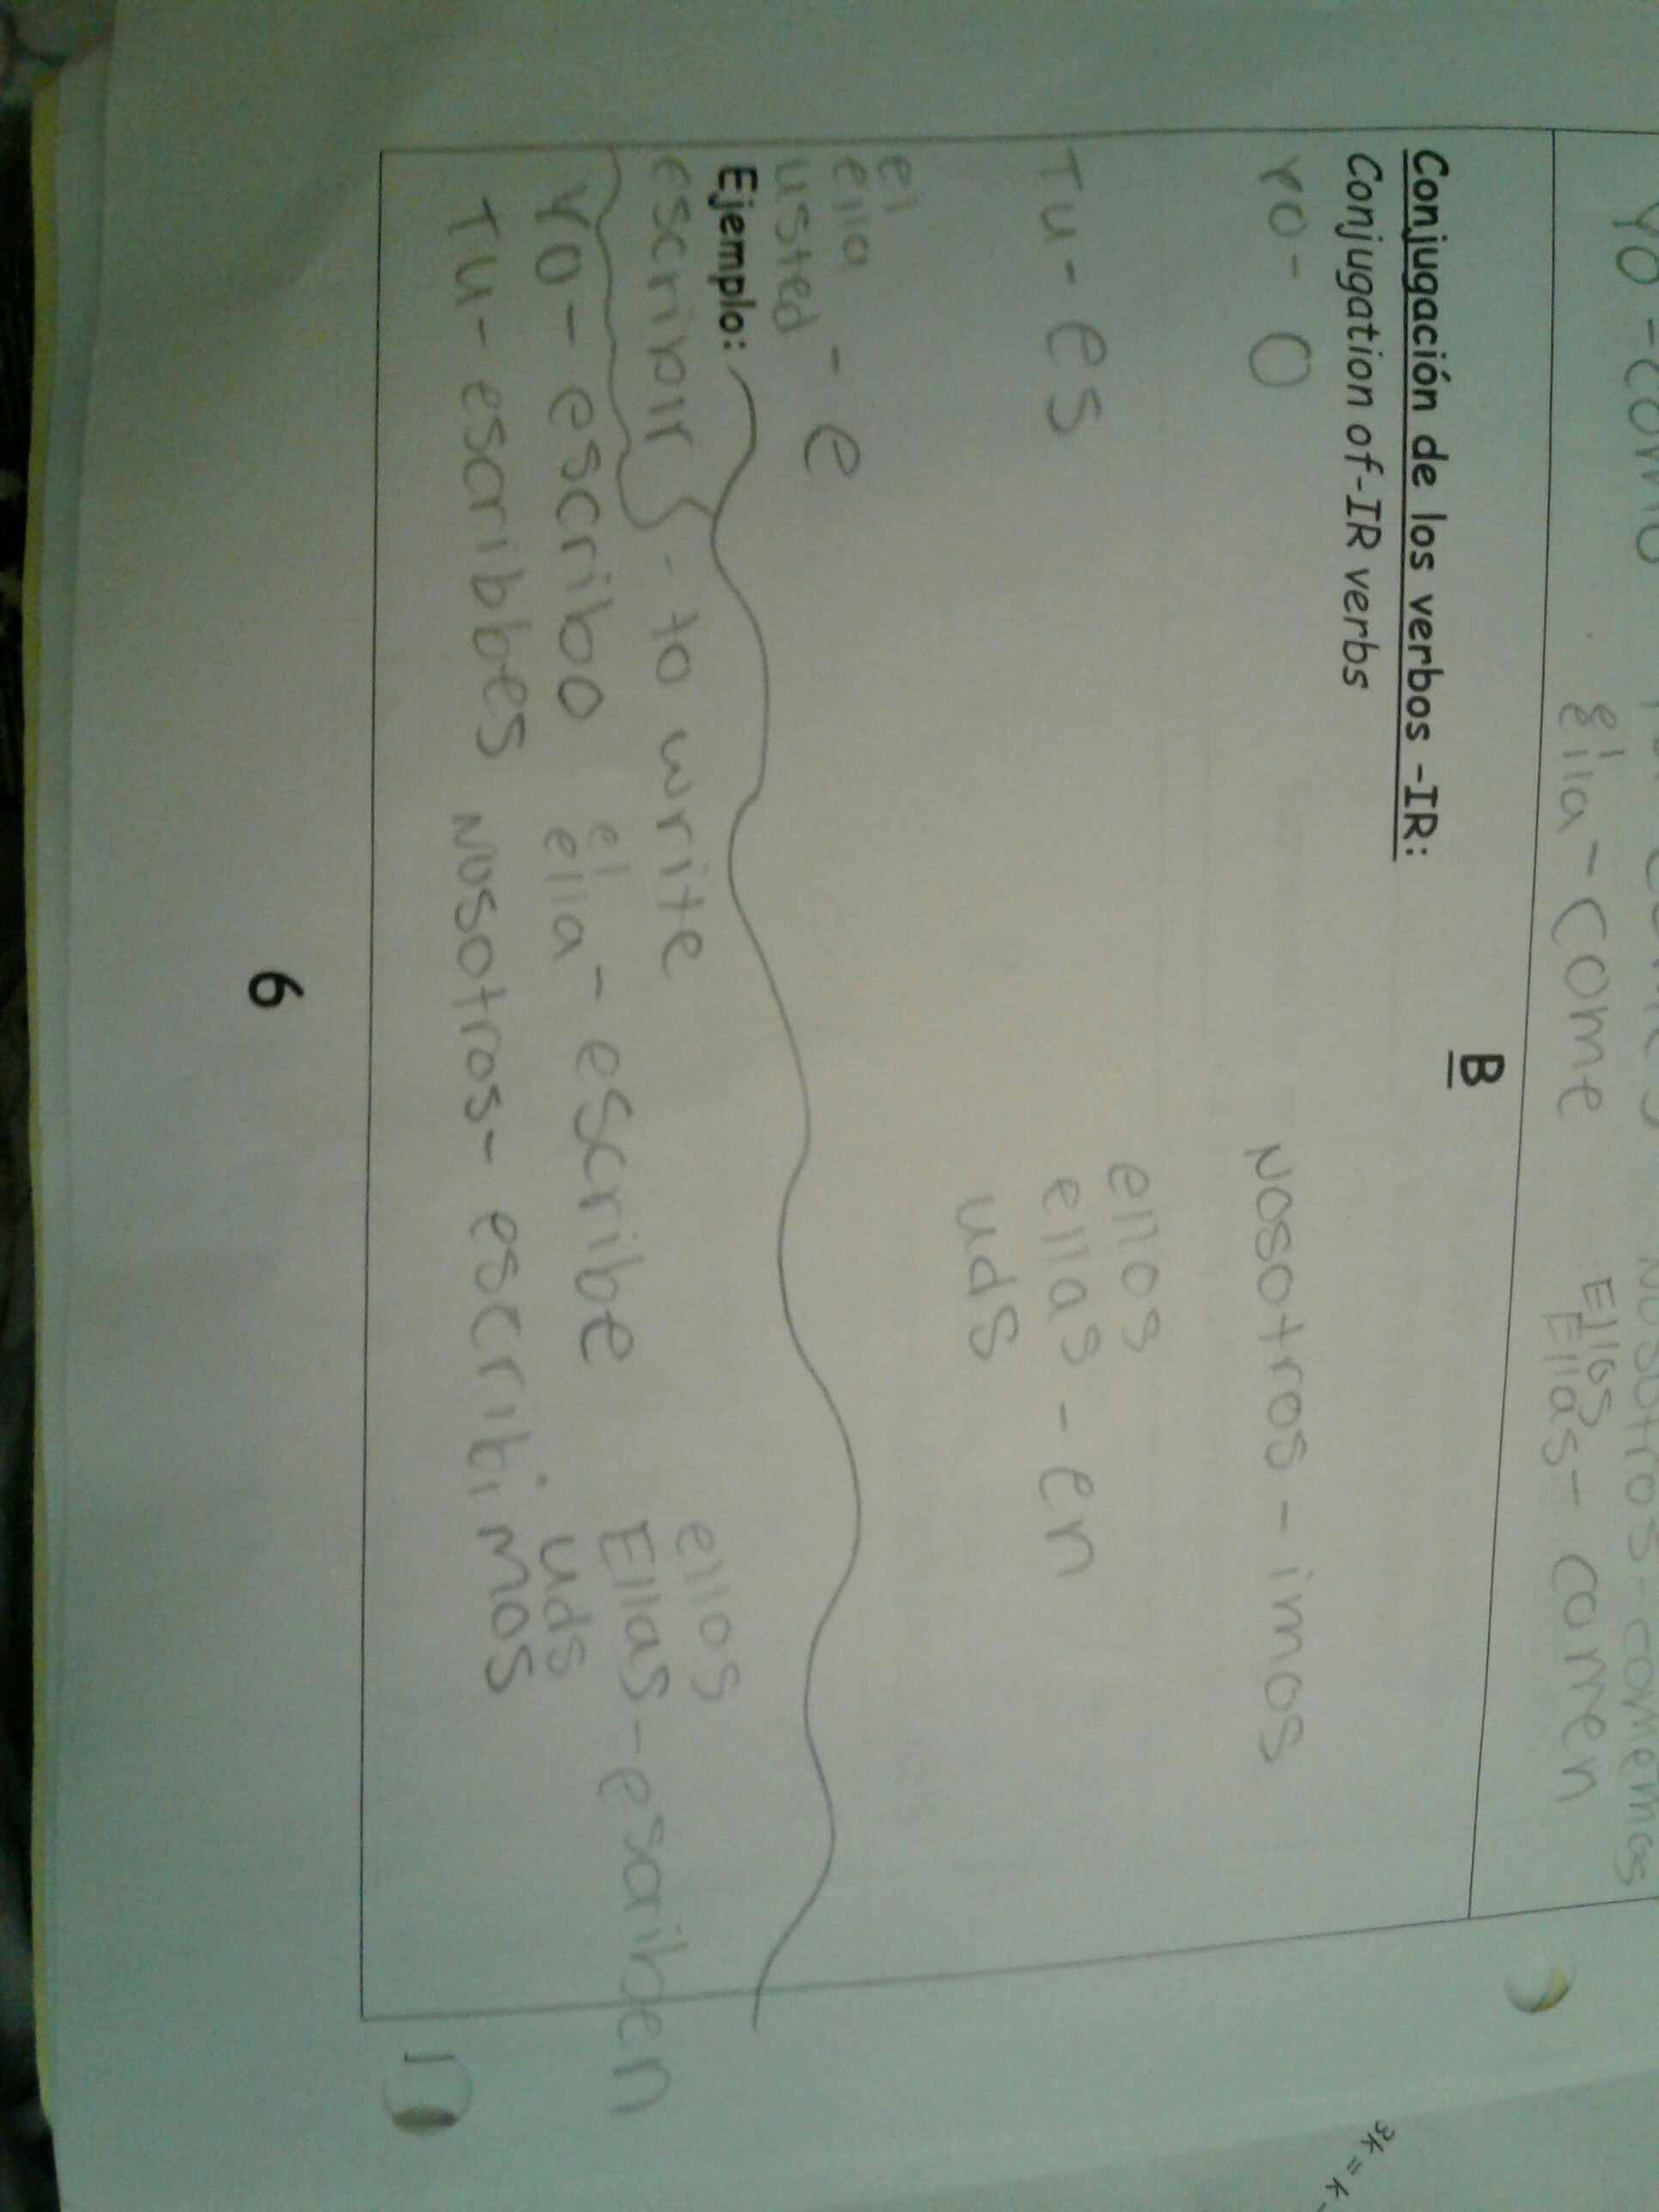 Yo - como
Nosotros - comemos
él
ella - come
Ellos
Ellas - comen
B
Conjugación de los verbos -IR:
Conjugation of -IR verbs
Yo - o
Nosotros - imos
Tu - es
ellos
ellas - en
uds
el
ella - e
usted
Ejemplo:
escribir - to write
Yo - escribo
el
ella - escribe
ellos
Ellas - escriben
uds
Tu - escribbes
Nosotros - escribimos
6